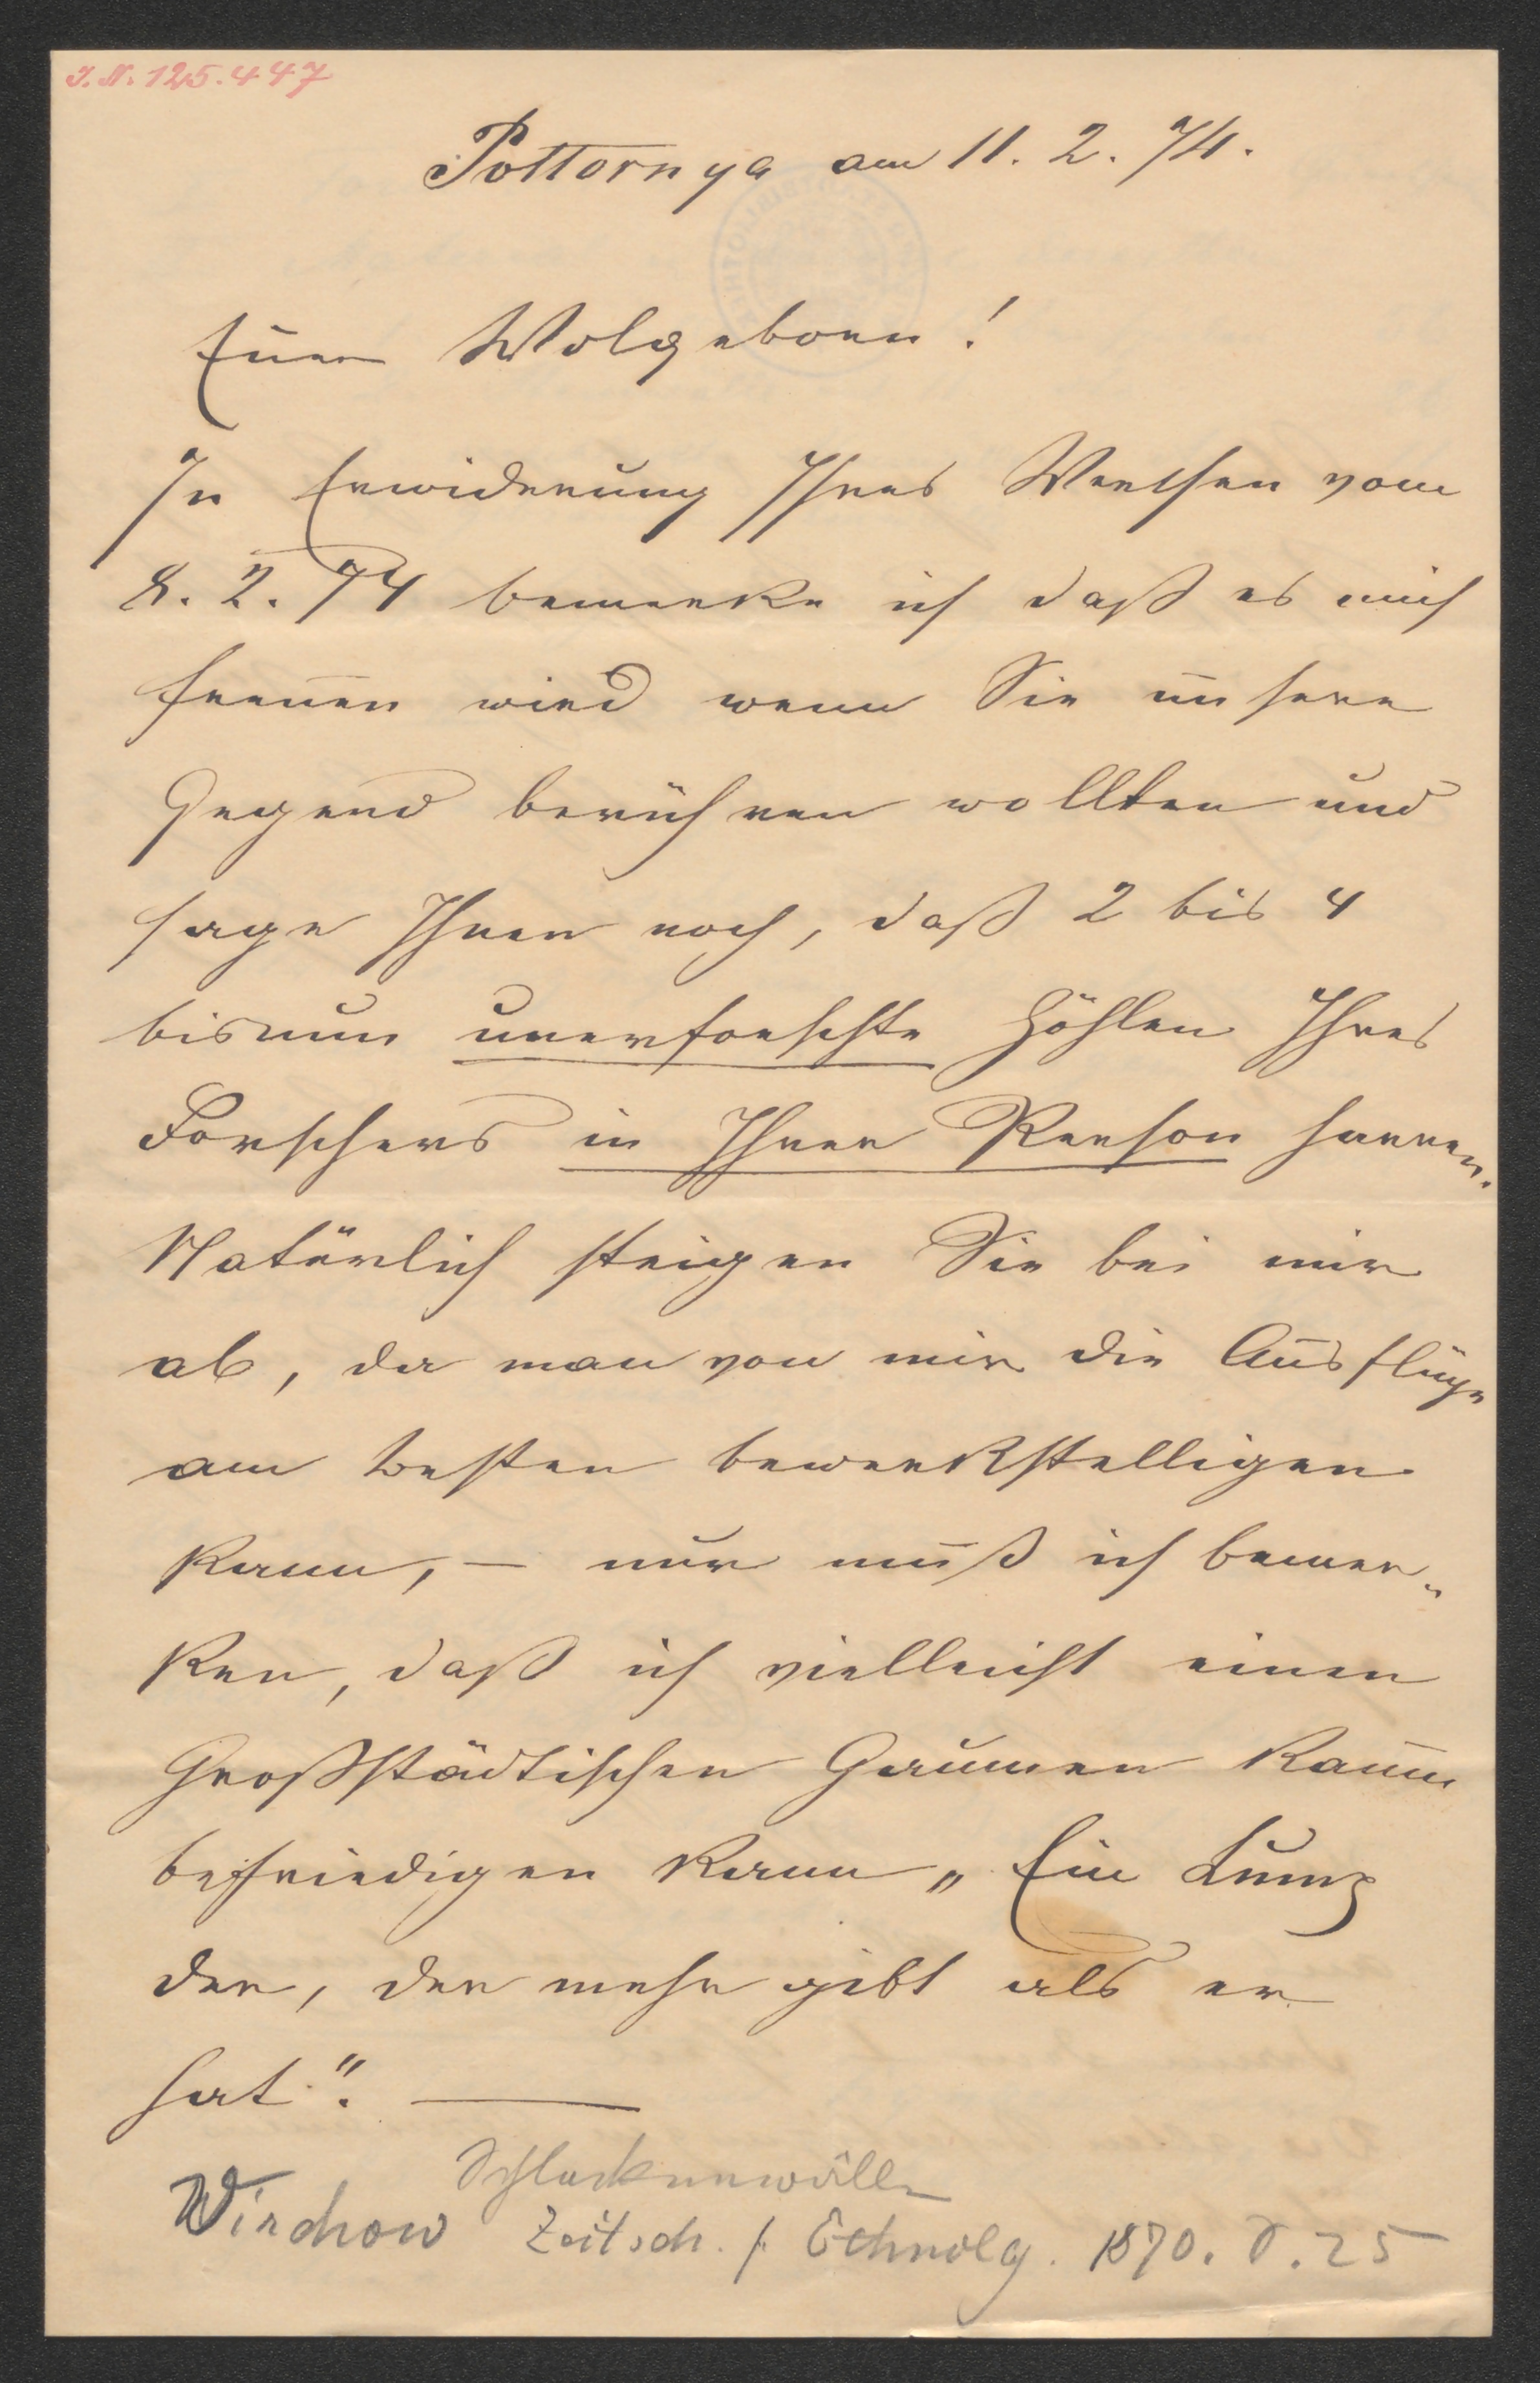 I.N. 125.447
Pottornya am 11. 2. 74.
Euer Wolgeboren!
In Erwiderung Ihres Werthen vom
8. 2. 74 bemerke ich daß es mich
freuen wird wenn Sie unsere
Gegend berühren wollten und
sage Ihnen noch, daß 2 bis 4
bisnun unerforschte Höhlen Ihres
Forschers in Ihrer Person harren.
Natürlich steigen Sie bei mir
ab, da man von mir die Ausflüge
am besten bewerkstelligen
kann, – nur muß ich bemer„
ken, daß ich vielleicht einen
Großstädtischen Gaumen kaum
befriedigen kann „Ein Lump
der, der mehr gibt als er
hat“. —
Schlackenwälle
Virchow Zeitsch. f. Ethnolg. 1870. S. 25